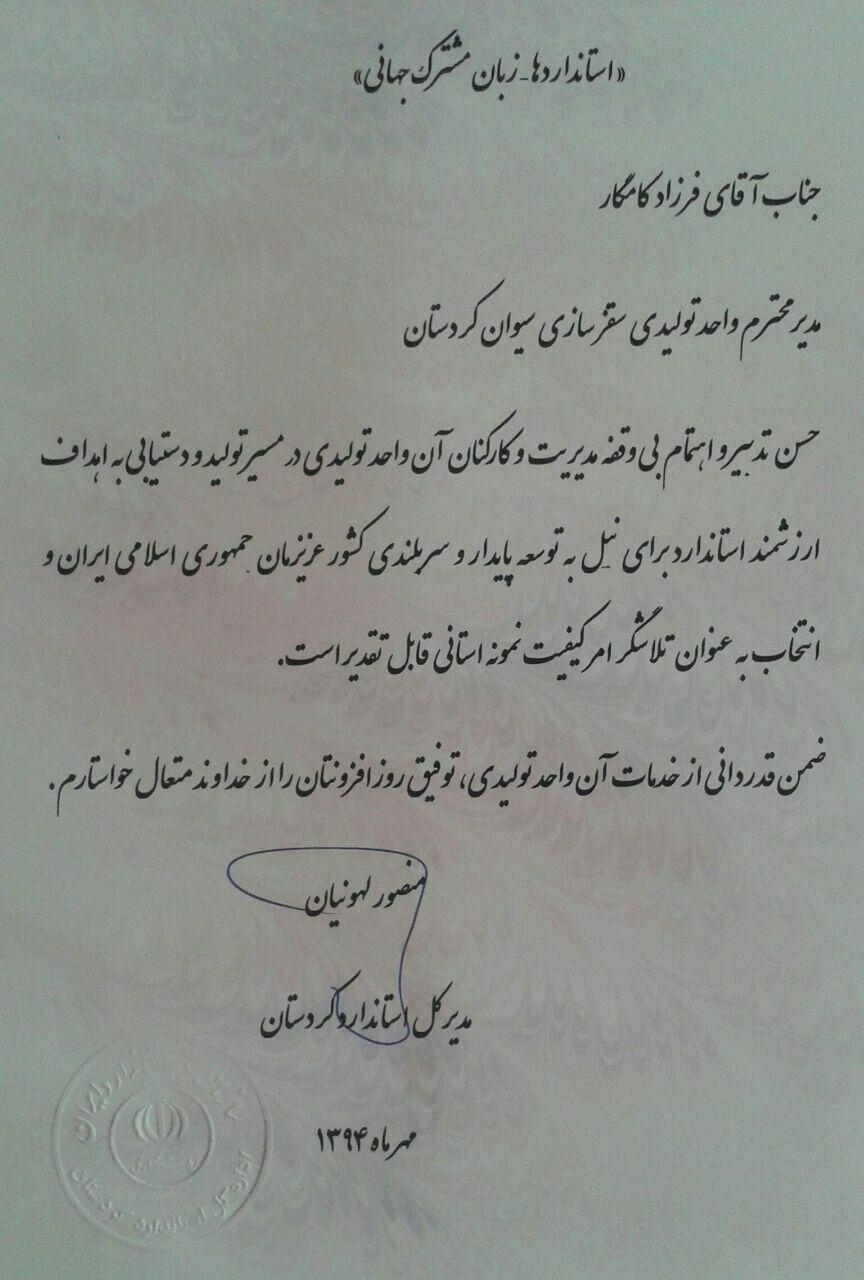 «استانداردها - زبان مشترک جهانی»
جناب آقای فرزاد کامگار
مدیر محترم واحد تولیدی سقزسازی سیوان کردستان
حسن تدبیر و اهتمام بی وقفه مدیریت و کارکنان آن واحد تولیدی در مسیر تولید و دستیابی به اهداف
ارزشمند استاندارد برای نیل به توسعه پایدار و سربلندی کشور عزیزمان جمهوری اسلامی ایران و
انتخاب به عنوان تلاشگر امر کیفیت نمونه استانی قابل تقدیر است.
ضمن قدردانی از خدمات آن واحد تولیدی، توفیق روز افزونتان را از خداوند متعال خواستارم.
منصور لهونیان
مدیر کل استاندارد کردستان
مهر ماه ۱۳۹۴
اداره کل استاندارد کردستان